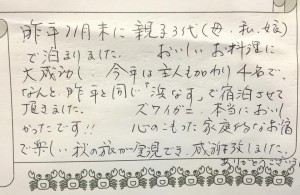 昨年11月末に親子3代(母・私・娘)
で泊まりました。 おいしいお料理に
大感動し 今年は主人も加わり4名で、
なんと、昨年と同じ「浜なす」で宿泊させて
頂きました。 ズワイガニ 本当においし
かったです!! 心のこもった家庭的なお宿
で楽しい秋の旅が実現でき、感謝致しました。
ありがとうございました